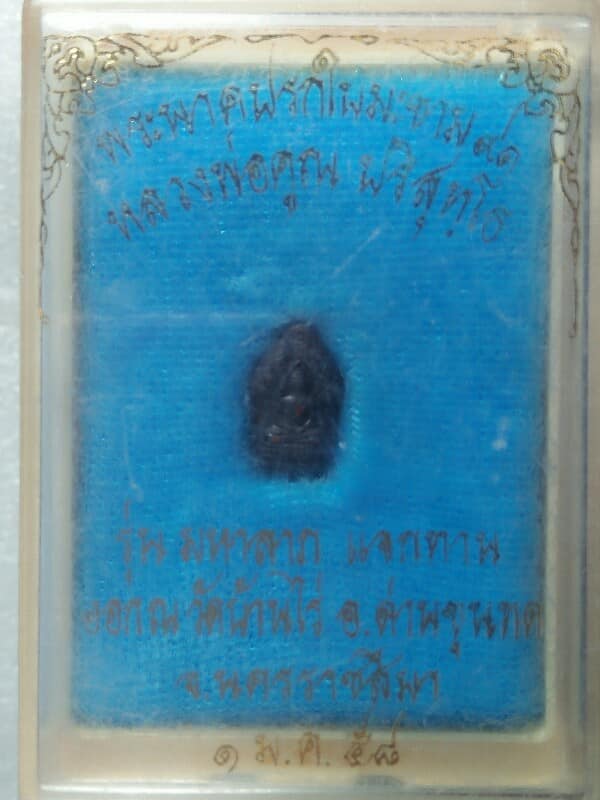 พระนาคปรกใบมะขาม ๙๑
หลวงพ่อคูณ ปริสุทโธ
รุ่น มหาลาภ แจกทาน
ออกณ วัดบ้านไร่ อ.ด่านขุนทด
จ.นครราชสีมา
๑ ม.ค. ๕๘